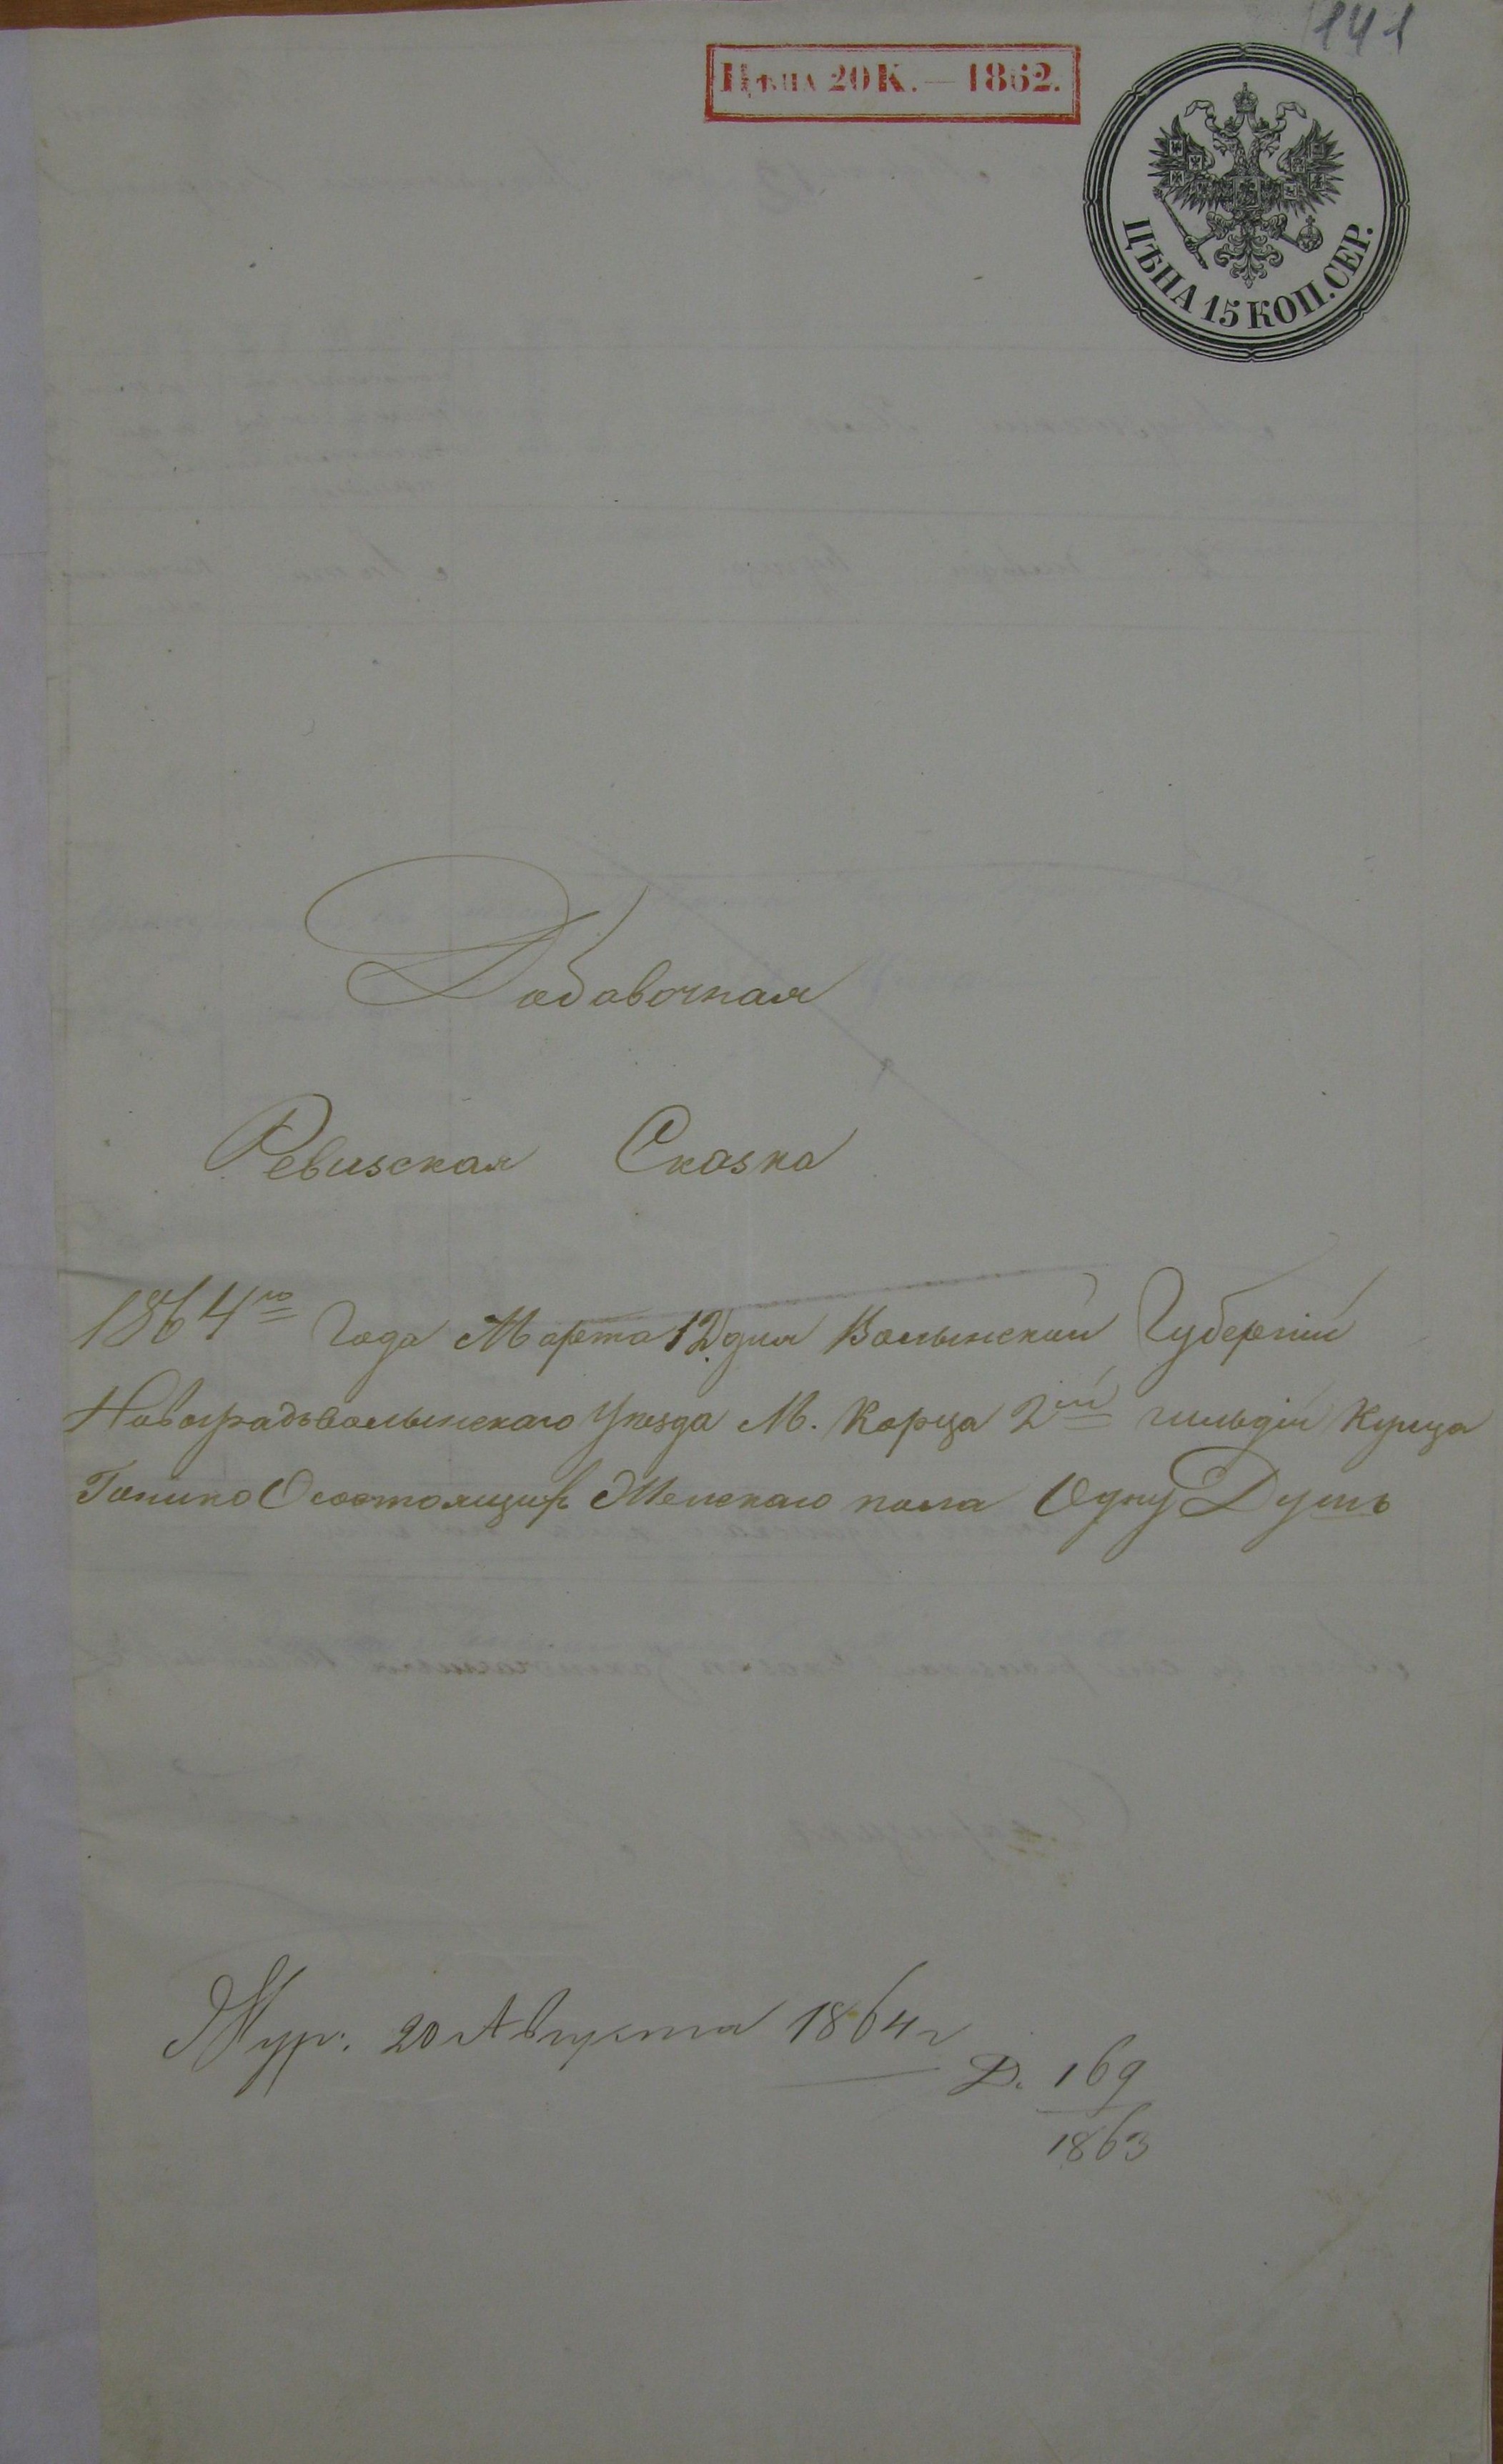 141
ЦѢНА 20 К. — 1862.
ЦѢНА 15 КОП. СЕР.
Добавочная
Ревизская Сказка
1864го Года Марта 12 дня Волынской Губерніи
Новоградволынскаго Уѣзда М. Корца 2ой гильдіи Купца
О состоящих Женскаго пола Одну Душъ
Жур. 20 Августа 1864 г
Д. 169
1863